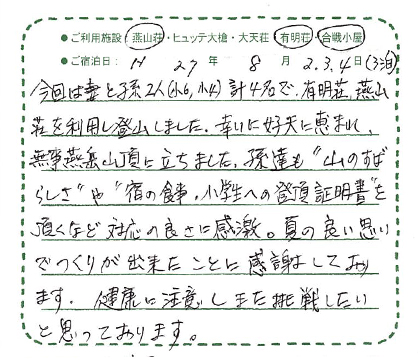 ●ご利用施設:燕山荘・ヒュッテ大槍・大天荘・有明荘・合戦小屋
●ご宿泊日: H 27 年 8 月 2.3.4日(3泊)
今回は妻と孫2人(小6,小4)計4名で、有明荘、燕山
荘を利用し登山しました。幸いに好天に恵まれ、
無事燕岳山頂に立ちました。孫達も“山のすば
らしさ”や“宿の食事,小学生への登頂証明書”を
頂くなど対応の良さに感激。夏の良い思い
でつくりが出来たことに感謝しており
ます. 健康に注意しまた挑戦したい
と思っております。